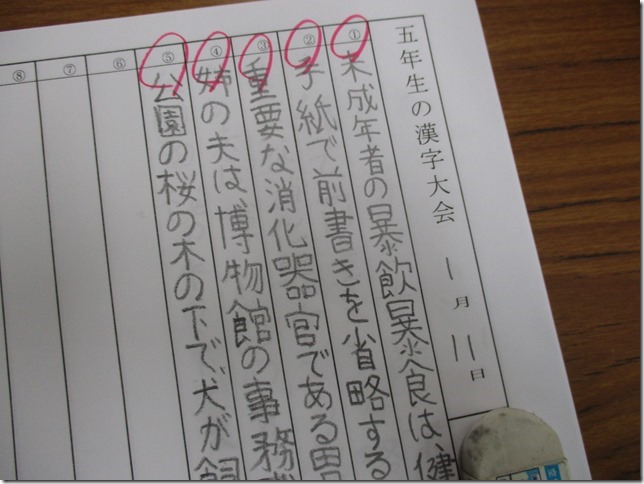 五年生の漢字大会 1月11日
① 未成年者の暴飲暴食は、健
② 手紙で前書きを省略する
③ 重要な消化器官である胃
④ 姉の夫は、博物館の事務
⑤ 公園の桜の木の下で、犬が飼
⑥
⑦
⑧